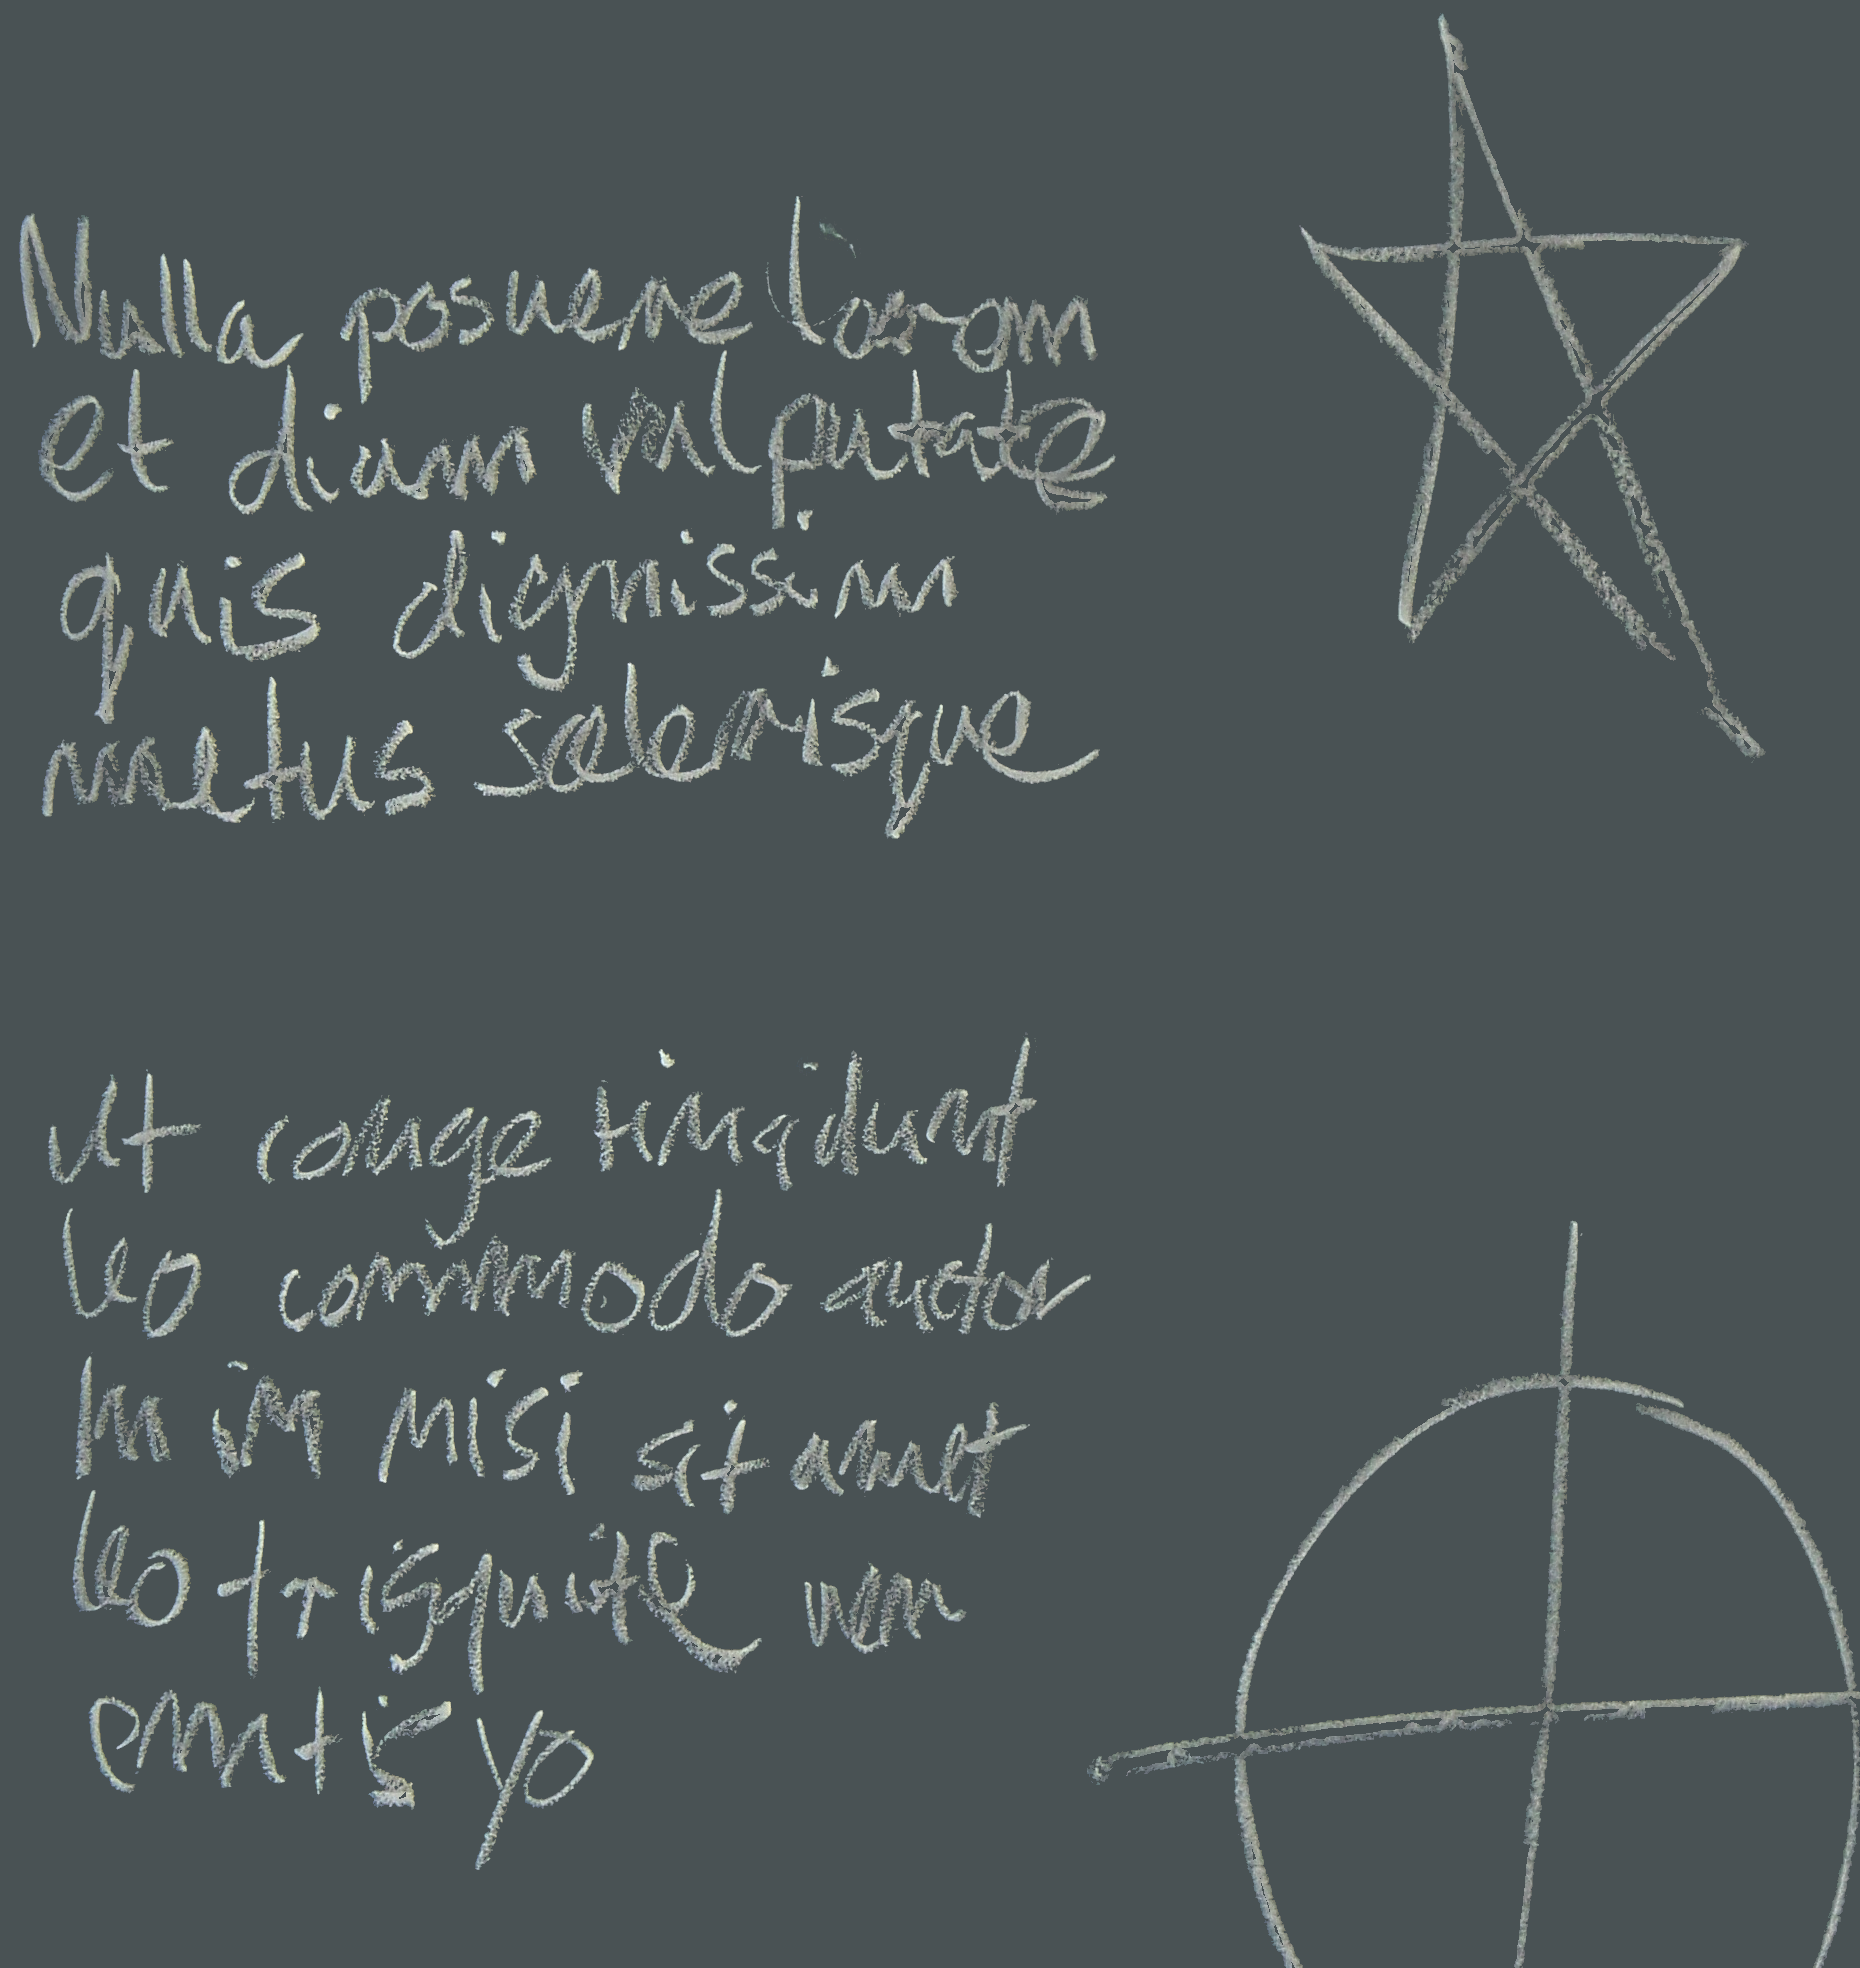 Nulla posuere lorem
et diam vulputate
quis dignissim
metus scelerisque
ut conge tincidunt
leo commodo auctor
In in nisi sit amet
leo tristique
yo